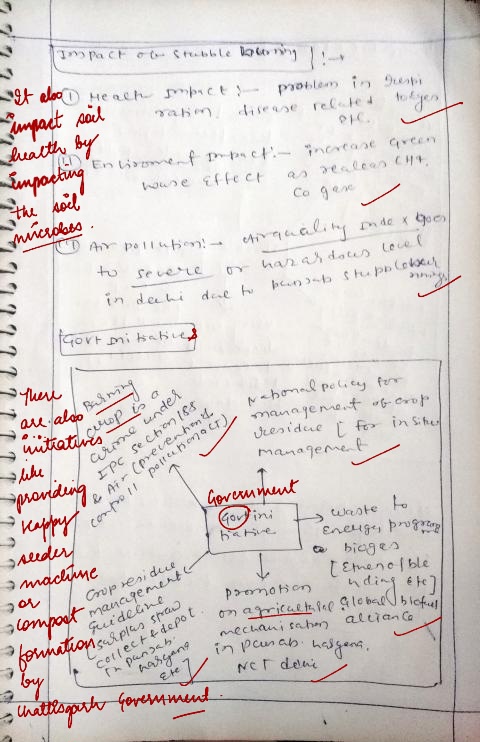 Impact of Stubble Burning } :→
It also
impact soil
health by
impacting
the soil
microbes.
① Health Impact :- problem in Respi
ration, disease related to eyes
etc.
(ii) Enviroment Impact :- increase Green
house Effect as realeas CH4,
Co gase
Air pollution :- Air quality Index goes
to severe or hazardous level
in delhi due to punjab stubble burnings
Govt Initiatives
There
are also
initiatives
like
providing
Happy
seeder
machine
or
compost
formation
by
Chattisgarh Government.
Burning
crop is a
crime under
IPC section 188
& Air (prevention &
controll pollution act)
National policy for
management of crop
residue [for in situ
management
Government
Govt ini
tiative
waste to
Energy, programme
biogas
[Ethenol ble
nding etc]
global biofuel
alliance
promotion
on agricultural
mechanisation
in Punjab, hargana,
NCT delhi
Crop residue
management
Guideline
[surplus straw
collect & depot
in Punjab,
hargana
etc]